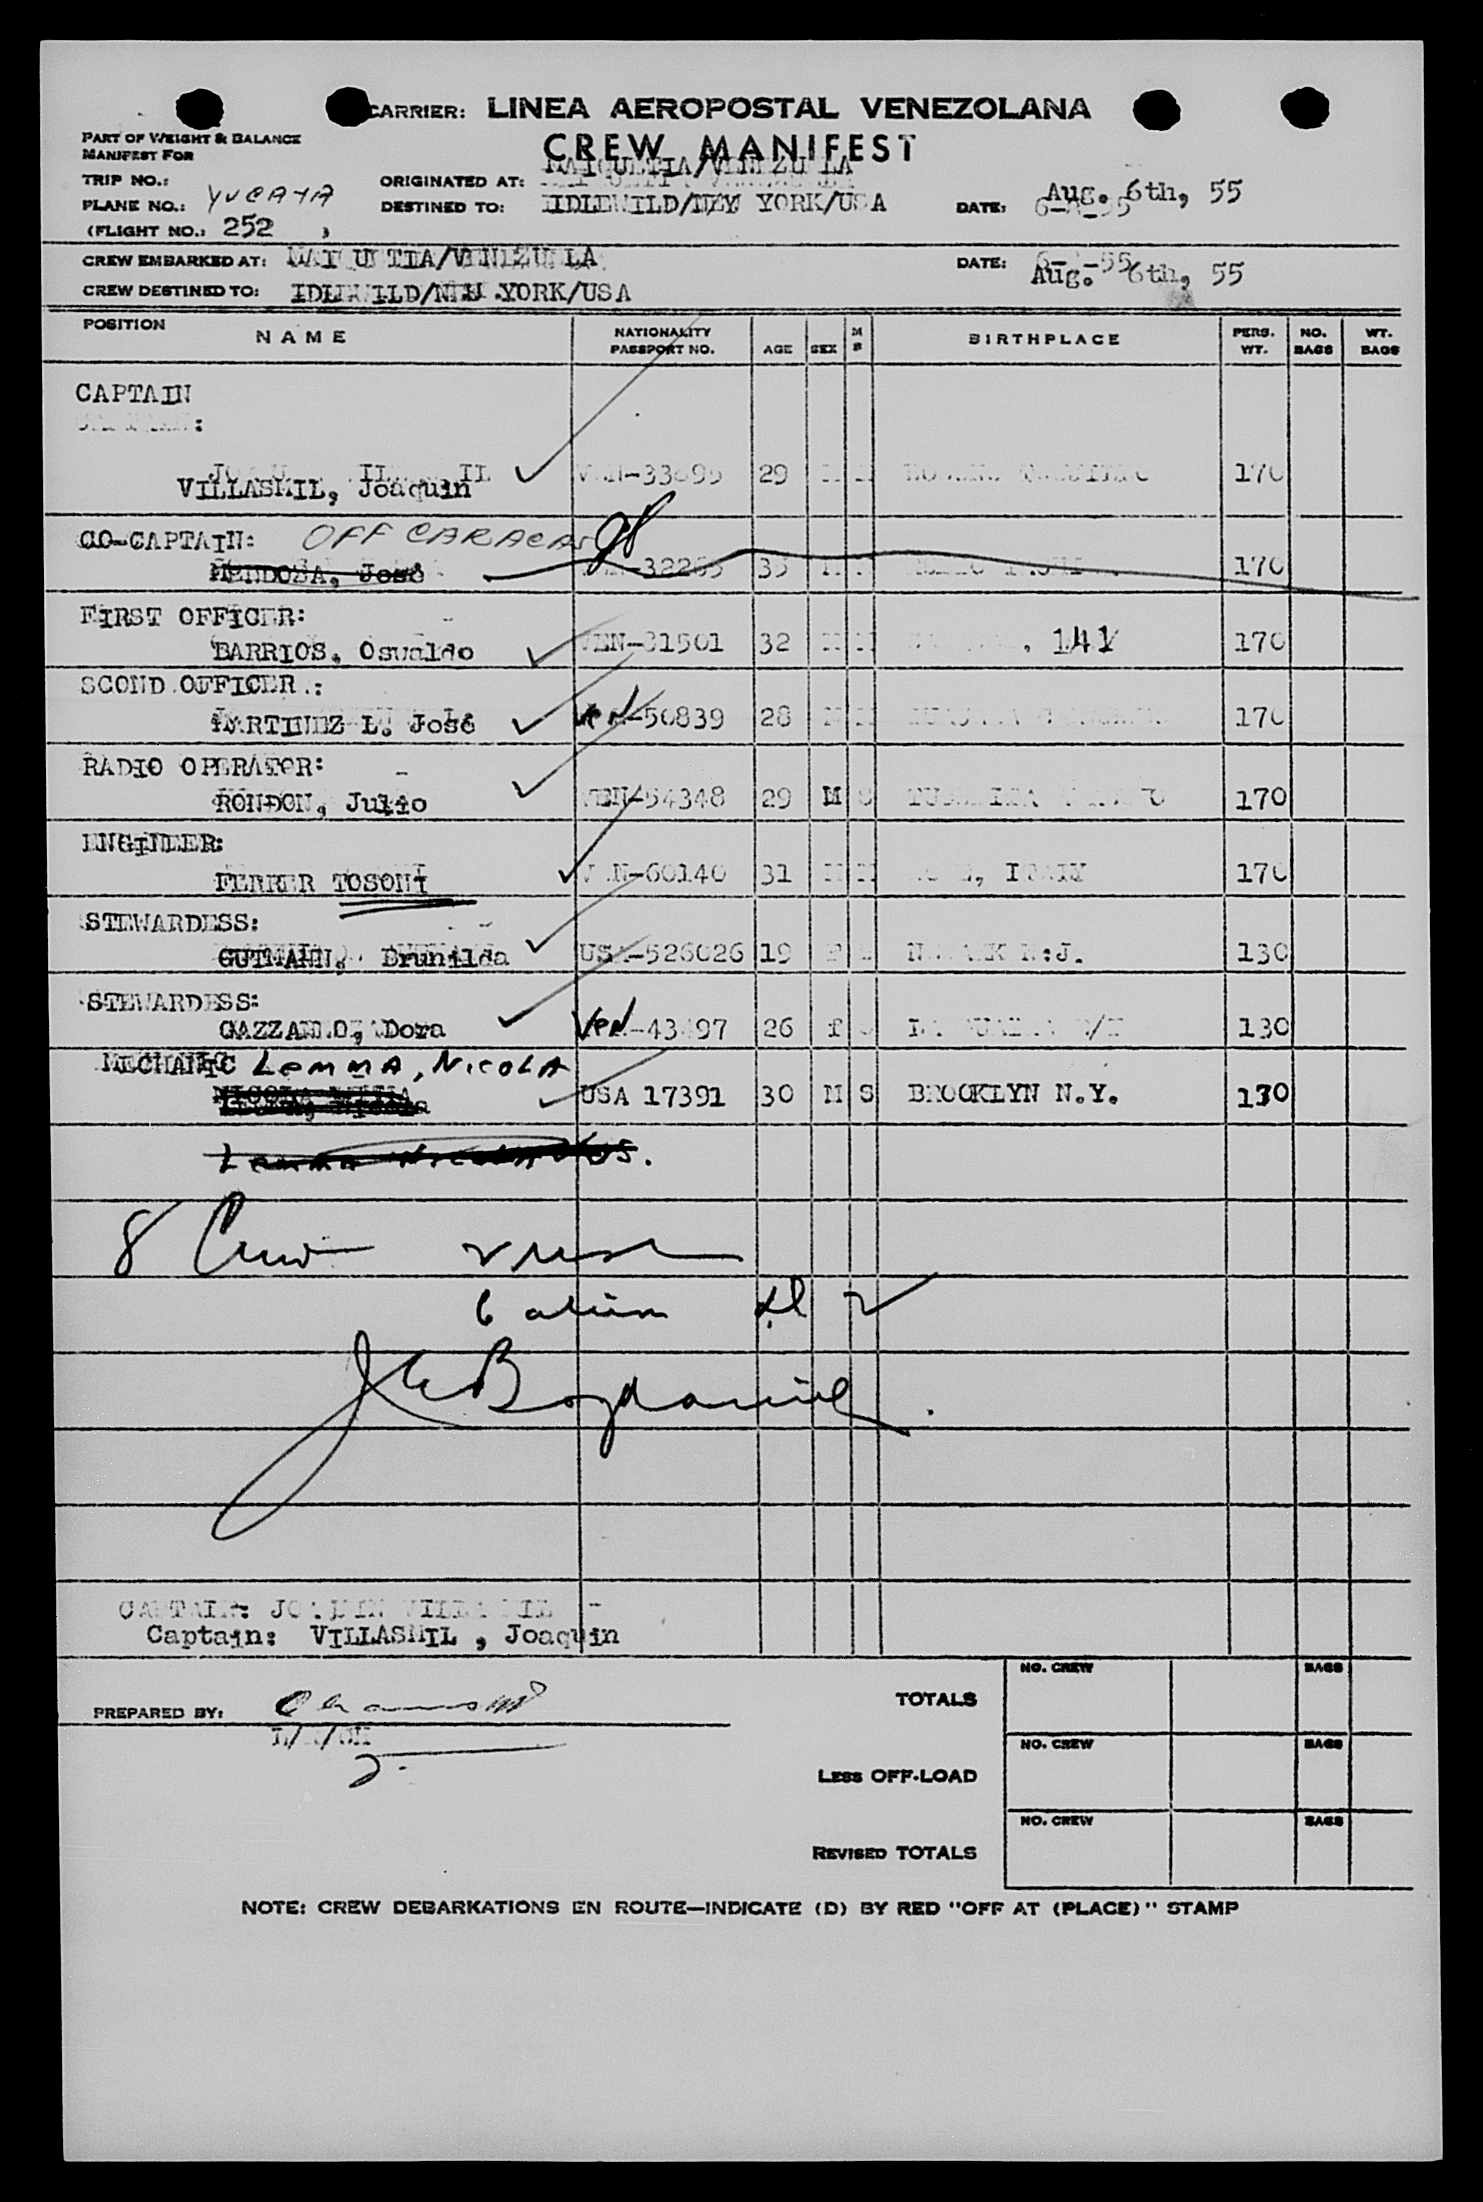 CARRIER: LINEA AEROPOSTAL VENEZOLANA
CREW MANIFEST
PART OF WEIGHT & BALANCE
MANIFEST FOR
TRIP NO.:
ORIGINATED AT: MAIQUETIA/VENEZUELA
PLANE NO.: YVCAYA
DESTINED TO: IDLEWILD/NEW YORK/USA
DATE: Aug. 6th, 55
(FLIGHT NO.: 252 )
CREW EMBARKED AT: MAIQUETIA/VENEZUELA
DATE: Aug. 6th, 55
CREW DESTINED TO: IDLEWILD/NEW YORK/USA
POSITION NAME NATIONALITY PASSPORT NO. AGE SEX M S BIRTHPLACE PERS. WT. NO. BAGS WT. BAGS
CAPTAIN
VILLASMIL, Joaquin 29 170
CO-CAPTAIN: OFF CARACAS
MENDOSA, José 170
FIRST OFFICER:
BARRIOS, Osvaldo VEN-31501 32 141 170
SCOND OFFICER.:
MARTINEZ L. José VEN-50839 28 170
RADIO OPERATOR:
RONDON, Julio VEN-54348 29 M S 170
ENGINEER:
FERRER TOSONI VEN-60140 31 ROME, ITALY 170
STEWARDESS:
GUTMANN, Brunilda USA-526026 19 F NEWARK N:J. 130
STEWARDESS:
GAZZANEO, Dora VEN-43 97 26 F 130
MECHANIC LEMMA, NICOLA
USA 17391 30 M S BROOKLYN N.Y. 130
Lemma Nicolaus.
8 Crew
J C Bogdanovic
CAPTAIN: JOAQUIN VILLASMIL
Captain: VILLASMIL , Joaquin
PREPARED BY:
TOTALS NO. CREW BAGS
LESS OFF-LOAD NO. CREW BAGS
REVISED TOTALS NO. CREW BAGS
NOTE: CREW DEBARKATIONS EN ROUTE—INDICATE (D) BY RED "OFF AT (PLACE)" STAMP